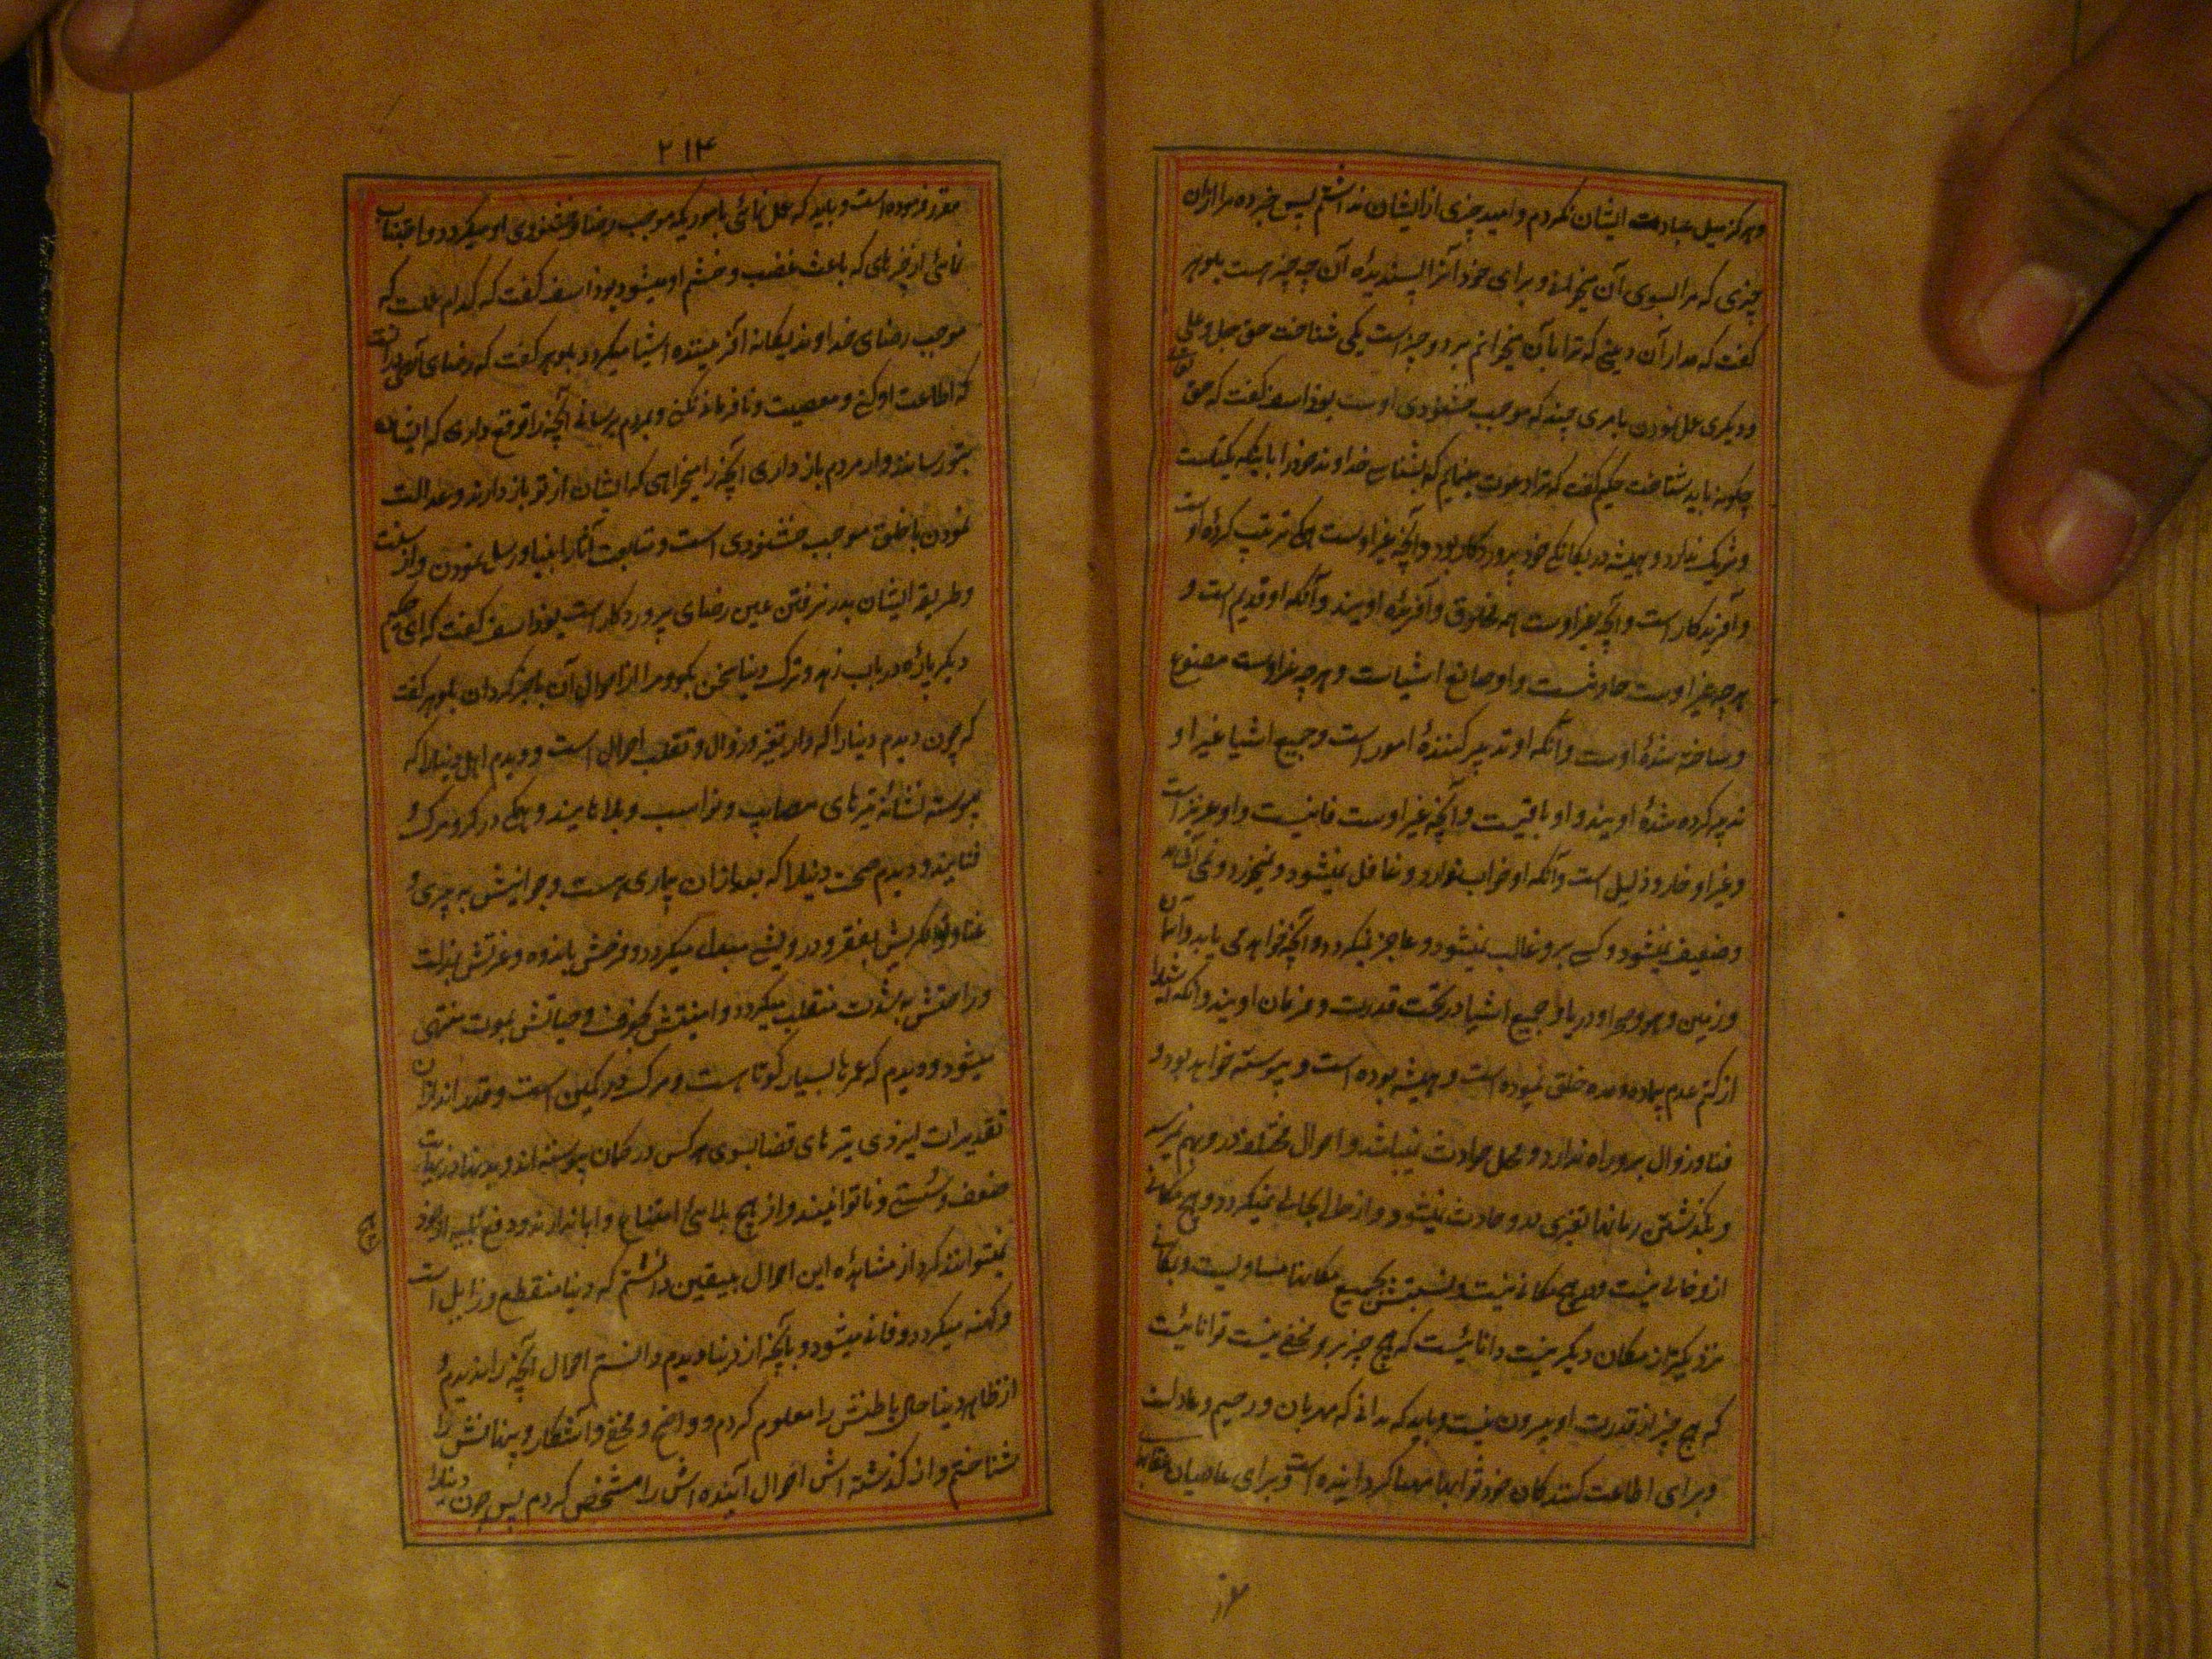 و هرگز میل عبادت ایشان نکردم و امید چیزی از ایشان نداشتم پس خبر ده مرا ازان
چیزی که مرا بسوی آن میخوانی و برای خود آنرا پسندیدهٔ آن چه چیز است بلوهر
گفت که مدار آن دینی که ترا بآن میخوانم بر دو چیز است یکی شناخت حق جل و علی
و دیگری عمل نمودن بامری چند که موجب خشنودی اوست یوذاسف گفت که حق
چگونه باید شناخت حکیم گفت که ترا دعوت مینمایم که بشناسی خداوند خود را باینکه یکتاست
و شریک ندارد و همیشه در یگانگی خود پروردگار بود و آنچه غیر اوست همگی تربیت کردهٔ اوست
و آفریدگار است و آنچه بغیر اوست همه مخلوق و آفریدهٔ اویند و آنکه او قدیم است و
هر چه غیر اوست حادثست و او صانع اشیاست و هر چه غیر اوست مصنوع
و ساخته شدهٔ اوست و آنکه او تدبیر کنندهٔ امور است و جمیع اشیا غیر او
تدبیر کرده شدهٔ اویند و او باقیست و آنچه غیر اوست فانیست و او عزیز است
و غیر او خار و ذلیل است و آنکه او خواب ندارد و غافل نمیشود و نمیخورد و نمی آشامد
و ضعیف نمیشود و کسی برو غالب نمیشود و عاجز نمیگردد و آنچه خواهد می یابد و آسمان
و زمین و هوا و صحرا و دریا و جمیع اشیا در تحت قدرت و فرمان اویند و آنکه اشیا را
از کتم عدم بیماده و مده خلق نموده است و همیشه بوده است و پیوسته خواهد بود و
فنا و زوال برو راه ندارد و محل حوادث نمیباشد و احوال مختلفه در و بهم نمیرسد
و بگذشتن زمانها تغیری درو حادث نمیشود و از حال بحالی نمیگردد و هیچ مکانی
ازو خالی نیست و در هیچ مکانی نیست و نسبتش بجمیع مکانها مساویست و بمکانی
نزدیکتر از مکان دیگر نیست دانائیست که هیچ چیز برو مخفی نیست توانائیست
که هیچ چیز از قدرت او بیرون نیست و باید که بدانی که مهربان و رحیم و عادلست
و برای اطاعت کنندگان خود ثوابها مهیا گردانیده است و برای عاصیان عقابها
مقرر
۲۱۴
مقرر فرموده است و باید که عمل نمائی باموریکه موجب رضا و خشنودی او میگردد و اجتناب
نمائی از چیزهای که باعث غضب و خشم او میشود یوذاسف گفت که کدام عملست که
موجب رضای خداوند یگانه آفریننده اشیا میگردد بلوهر گفت که رضای آلهی در آنست
که اطاعت او کنی و معصیت و نافرمانی نکنی و بمردم برسانی آنچه را توقع داری که ایشان
بتو رسانند و از مردم باز داری آنچه را میخواهی که ایشان از تو باز دارند و عدالت
نمودن با خلق موجب خشنودی است و متابعت آثار انبیا و رسل نمودن و از سنت
و طریقه ایشان بدر نرفتن عین رضای پروردگار است یوذاسف گفت که ای حکیم
دیگر پارهٔ در باب زهد و ترک دنیا سخن بگو و مرا از احوال آن باخبر گردان بلوهر گفت
که چون دیدم دنیا را که دار تغیر و زوال و تقلب احوال است و دیدم اهل دنیا را که
پیوسته نشانهٔ تیرهای مصایب و نوایب و بلاهایند و همگی در گرو مرگ و
فنایند و دیدم صحت دنیا را که بعد ازان بیماری هست و جوانیش به پیری و
غنا و توانگریش بفقر و درویشی مبدل میگردد و فرحش باندوه و عزتش بذلت
و راحتش به شدت منقلب میگردد و امنیتش بخوف و حیاتش بموت منتهی
میشود و دیدم که عمرها بسیار کوتاهست و مرگ در کمین است و قدر اندازان
تقدیرات ایزدی تیرهای قضا بسوی هر کس در کمان پیوسته اند و بدنها در نهایت
ضعف و سستی و ناتوانیند و از هیچ بلائی امتناع و ابا ندارند و دفع بلیه از خود
هیچ
نمیتوانند کرد از مشاهدهٔ این احوال بیقین دانستم که دنیا منقطع و زایل است
و کهنه میگردد و فانی میشود و بآنچه از دنیا دیدم دانستم احوال آنچه را ندیدم و
از ظاهر دنیا حال باطنش را معلوم کردم و واضح و مخفی و آشکار و پنهانش را
شناختم و از گذشته اش احوال آینده اش را مشخص کردم پس چون دنیا را